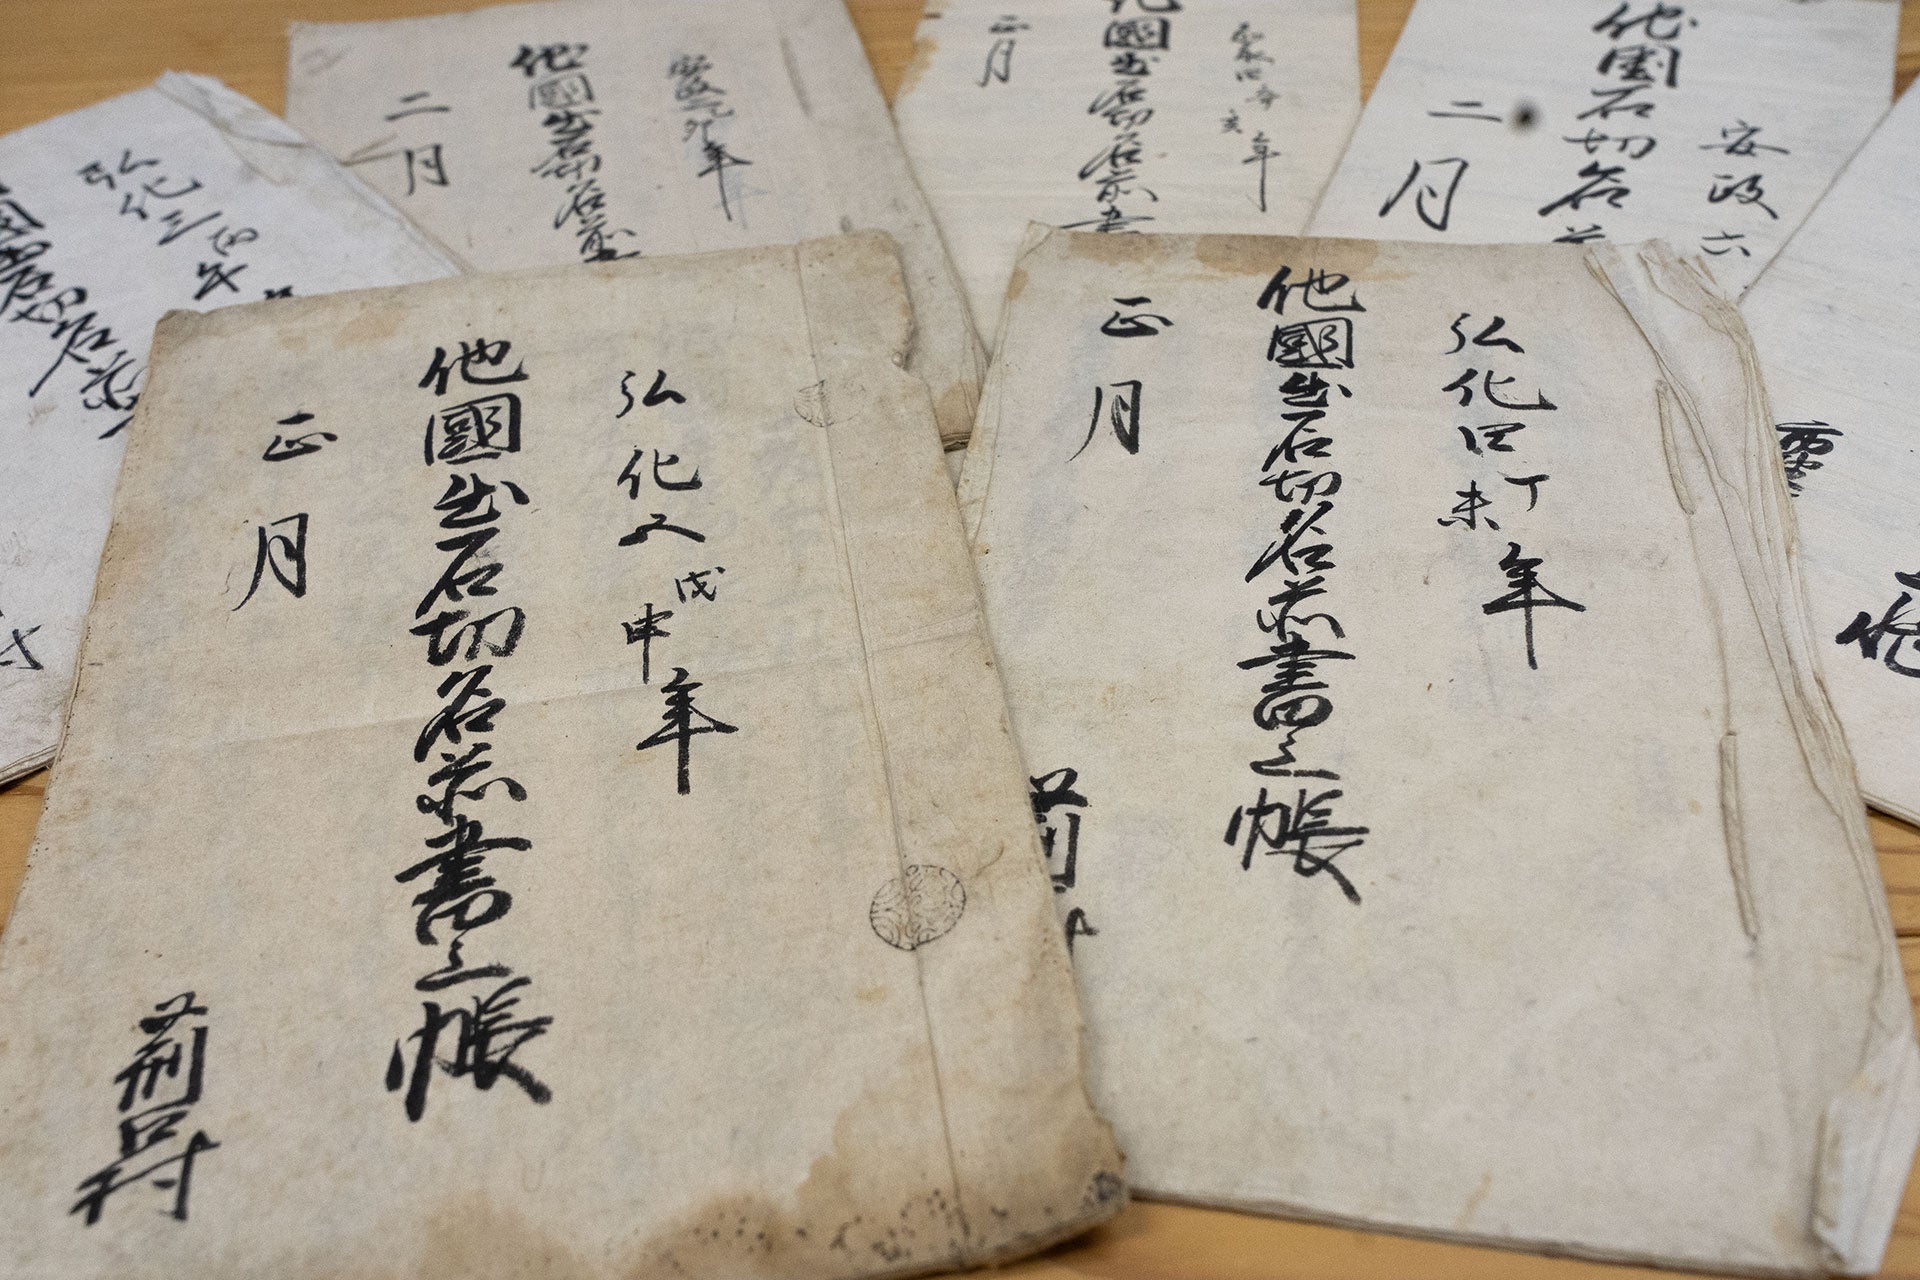 安政六
他國石切名前
二月
嘉永四辛亥年
他國出石切名前書
正月
安政二卯年
他國出石切名前書
二月
弘化三丙午
國出石切名前
弘化四丁未年
他國出石切名前書之帳
正月
弘化五戊申年
他國出石切名前書之帳
正月
荊口村